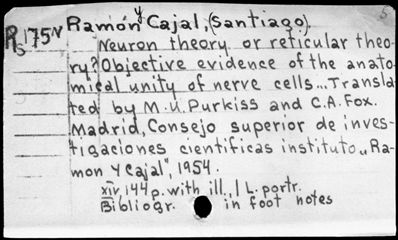 5
Ramón y Cajal, (Santiago).
Rs175N
Neuron theory or reticular theo-
ry? Objective evidence of the anato-
mical unity of nerve cells... Transla-
ted by M.U. Purkiss and C.A. Fox.
Madrid, Consejo superior de inves-
tigaciones cientificas instituto "Ra-
mon y Cajal", 1954.
xiv, 144 p. with ill., 1 L. portr.
Bibliogr. in foot notes